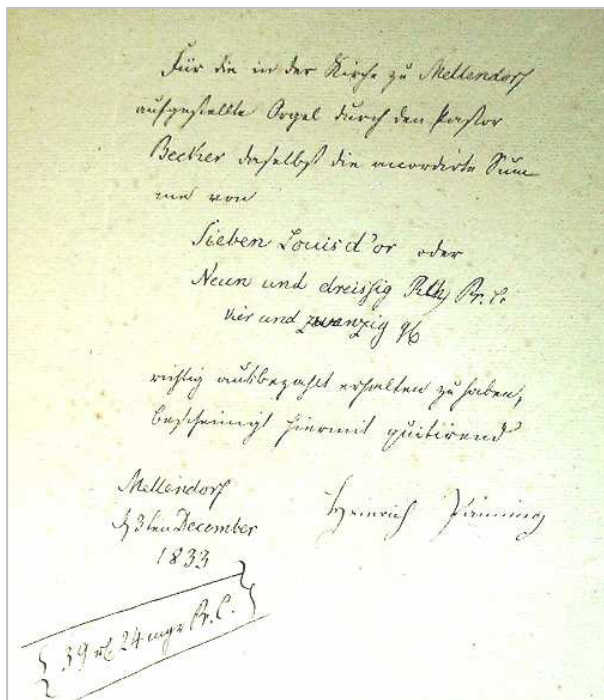 Für die in der Kirche zu Mellendorf
aufgestellte Orgel durch den Pastor
Becker daselbst die accordirte Sum
me von
Sieben Louisd'or oder
Neun und dreissig Rth Pr. C.
vier und zwanzig
richtig ausbezahlt erhalten zu haben,
bescheinigt hiermit quitirend
Mellendorf
d 3ten December
1833
Heinrich
39 24 mgr Pr. C.